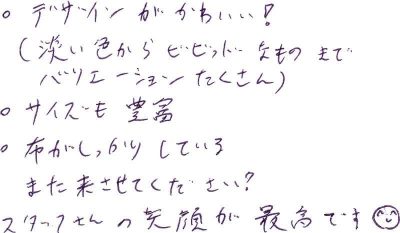 ○ デザインがかわいい!
(淡い色からビビットなものまで
バリエーションたくさん)
○ サイズも豊富
○ 布がしっかりしている
また来させてください?
スタッフさんの笑顔が最高です